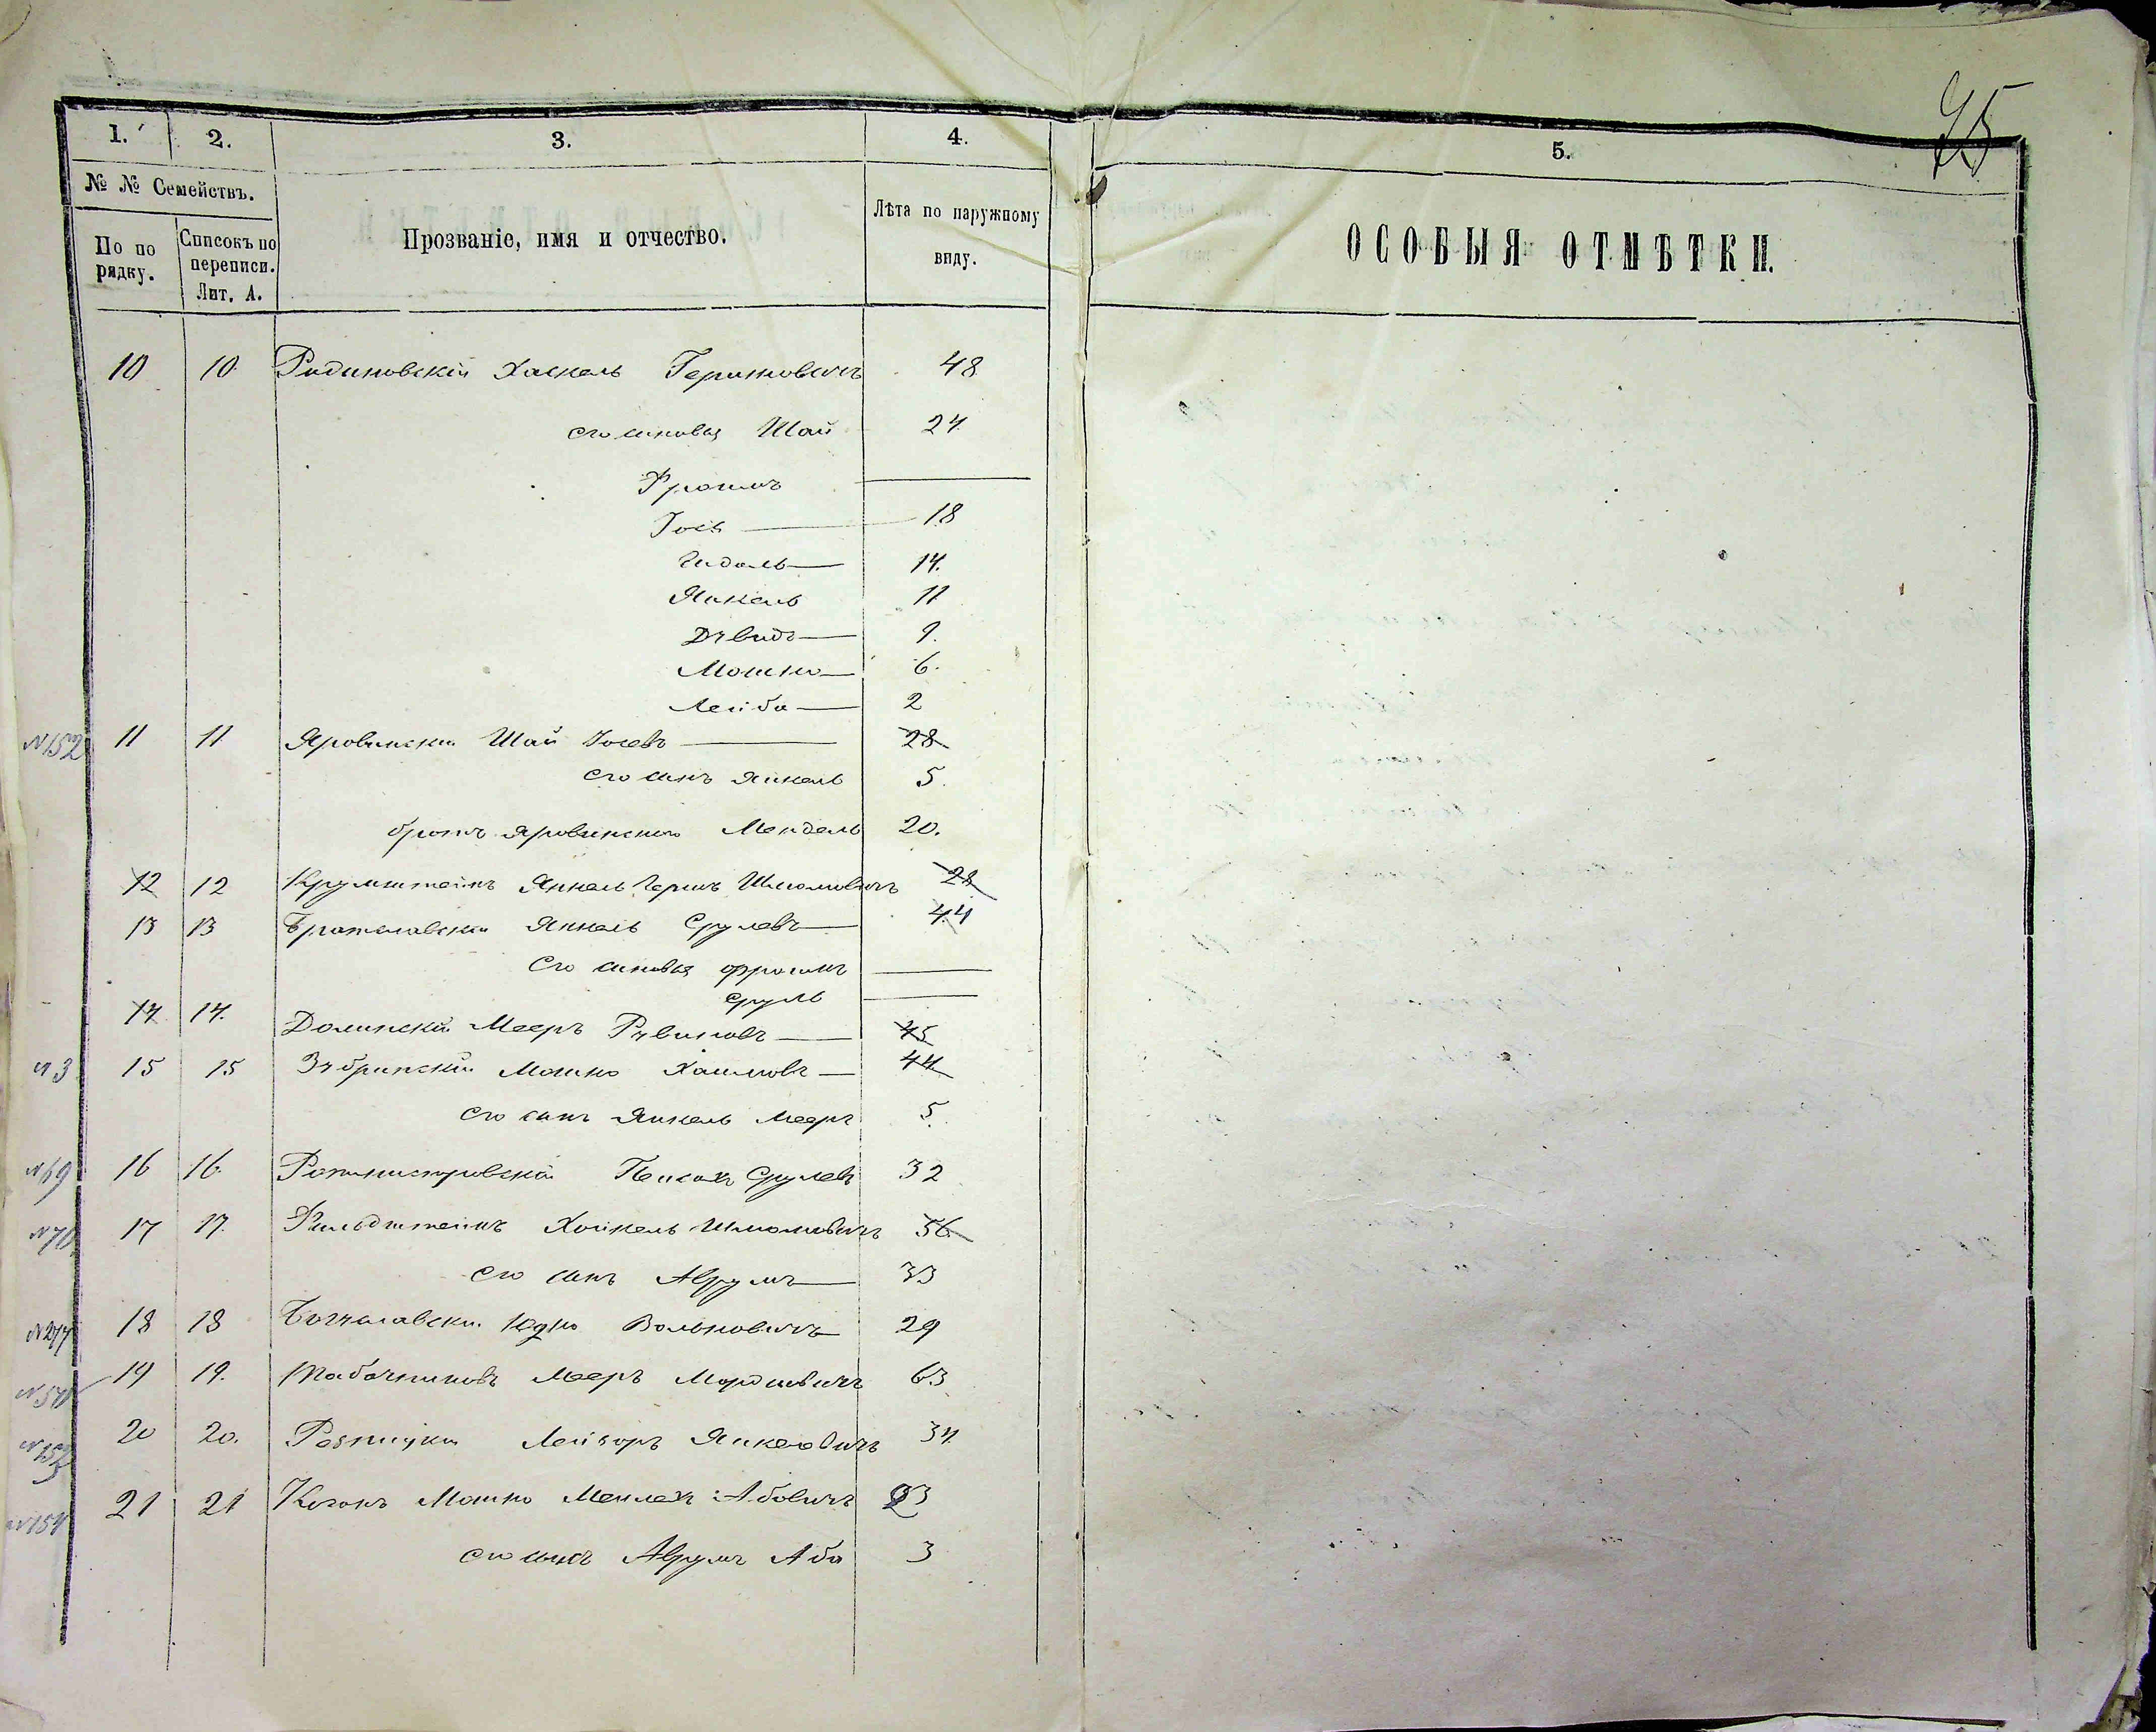 25
1. 2. 3. 4. 5.
№ № Семействъ.
По по рядку.
Списокъ по переписи. Лит. А.
Прозваніе, имя и отчество.
Лѣта по наружному виду.
ОСОБЫЯ ОТМѢТКИ.
10 10 Радиновскій Хаскель Гершковичъ 48
его сыновья Шая 24
Фроимъ
Іось 18
Гидаль 14.
Янкель 11
Давидъ 9.
Мошко 6.
Лейба 2
№152 11 11 Яровински Шая Іосевъ 28
его сынъ Янкель 5.
братъ Яровинскаго Мендель 20.
12 12 Крумштейнъ Янкель Гершъ Шлиомовичъ 28
13 13 Братславски Янкель Срулевъ 44
его сыновья Фроимъ
Сруль
14 14. Долинскій Мееръ Рувиновъ 45
№3 15 15 Забринскій Мошко Хаимовъ 44
его сынъ Янкель Мееръ 5.
№69 16 16. Ротмистровскій Пейсахъ Срулевъ 32
№70 17 17. Фильдштейнъ Хаикель Шлиомовичъ 56
его сынъ Аврумъ 33
№ 18 18 Богуславски Юдко Вольковичъ 29
19 19. Табачниковъ Мееръ Мордковичъ 63
20 20. Резницки Лейзоръ Янкелевичъ 34
№154 21 21 Коганъ Мошко Мейлехъ Абовичъ 23
его сынъ Аврумъ Аба 3